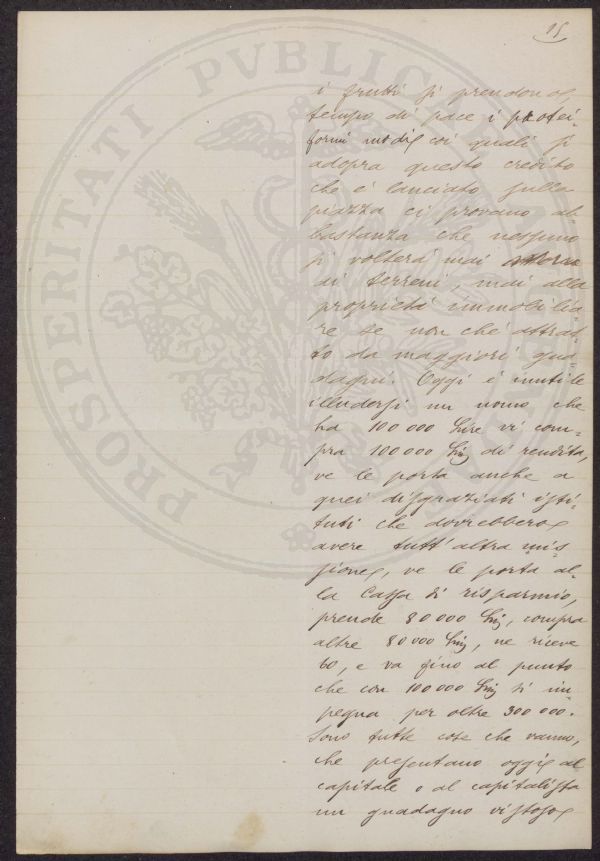 15
i frutti si prendono
tempo di pace i protei-
formi modi coi quali si
adopra questo credito
che è lanciato sulla
piazza ci provano ab
bastanza che nessuno
si volterà mai
ai terreni, mai alla
proprietà immobilia-
re se non che attrat-
to da maggiori gua
dagni. Oggi è inutile
illudersi un uomo che
ha 100 000 lire vi com-
pra 100 000 Lire di rendita,
ve le porta anche a
quei disgraziati isti-
tuti che dovrebbero
avere tutt'altra mis
sione, ve le porta al-
la Cassa di risparmio,
prende 80 000 Lire, compra
altre 80 000 Lire, ne riceve
60, e va fino al punto
che con 100 000 Lire si im
pegna per oltre 300 000.
Sono tutte cose che vanno,
che presentano oggi al
capitale o al capitalista
un guadagno vistoso
PROSPERITATI PVBLICAE